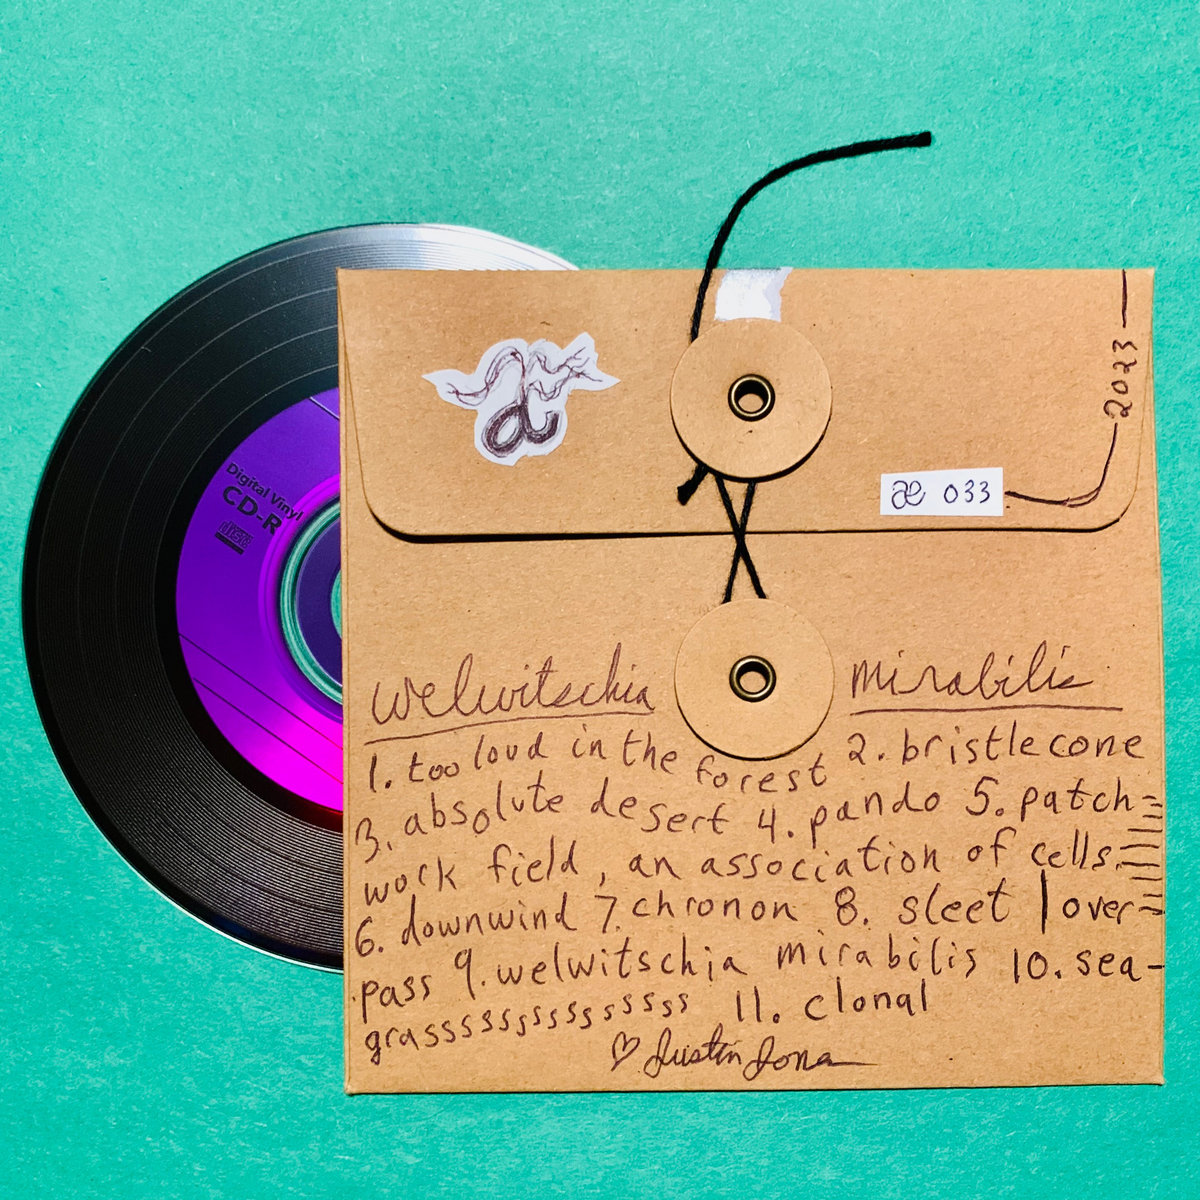 Digital Vinyl
CD-R
æ
2023
æ 033
welwitschia mirabilis
1. too loud in the forest 2. bristlecone
3. absolute desert 4. pando 5. patch-
work field, an association of cells.
6. downwind 7. chronon 8. sleet | over-
pass 9. welwitschia mirabilis 10. sea-
grassssssssssssss 11. clonal
♡ Justin Jona